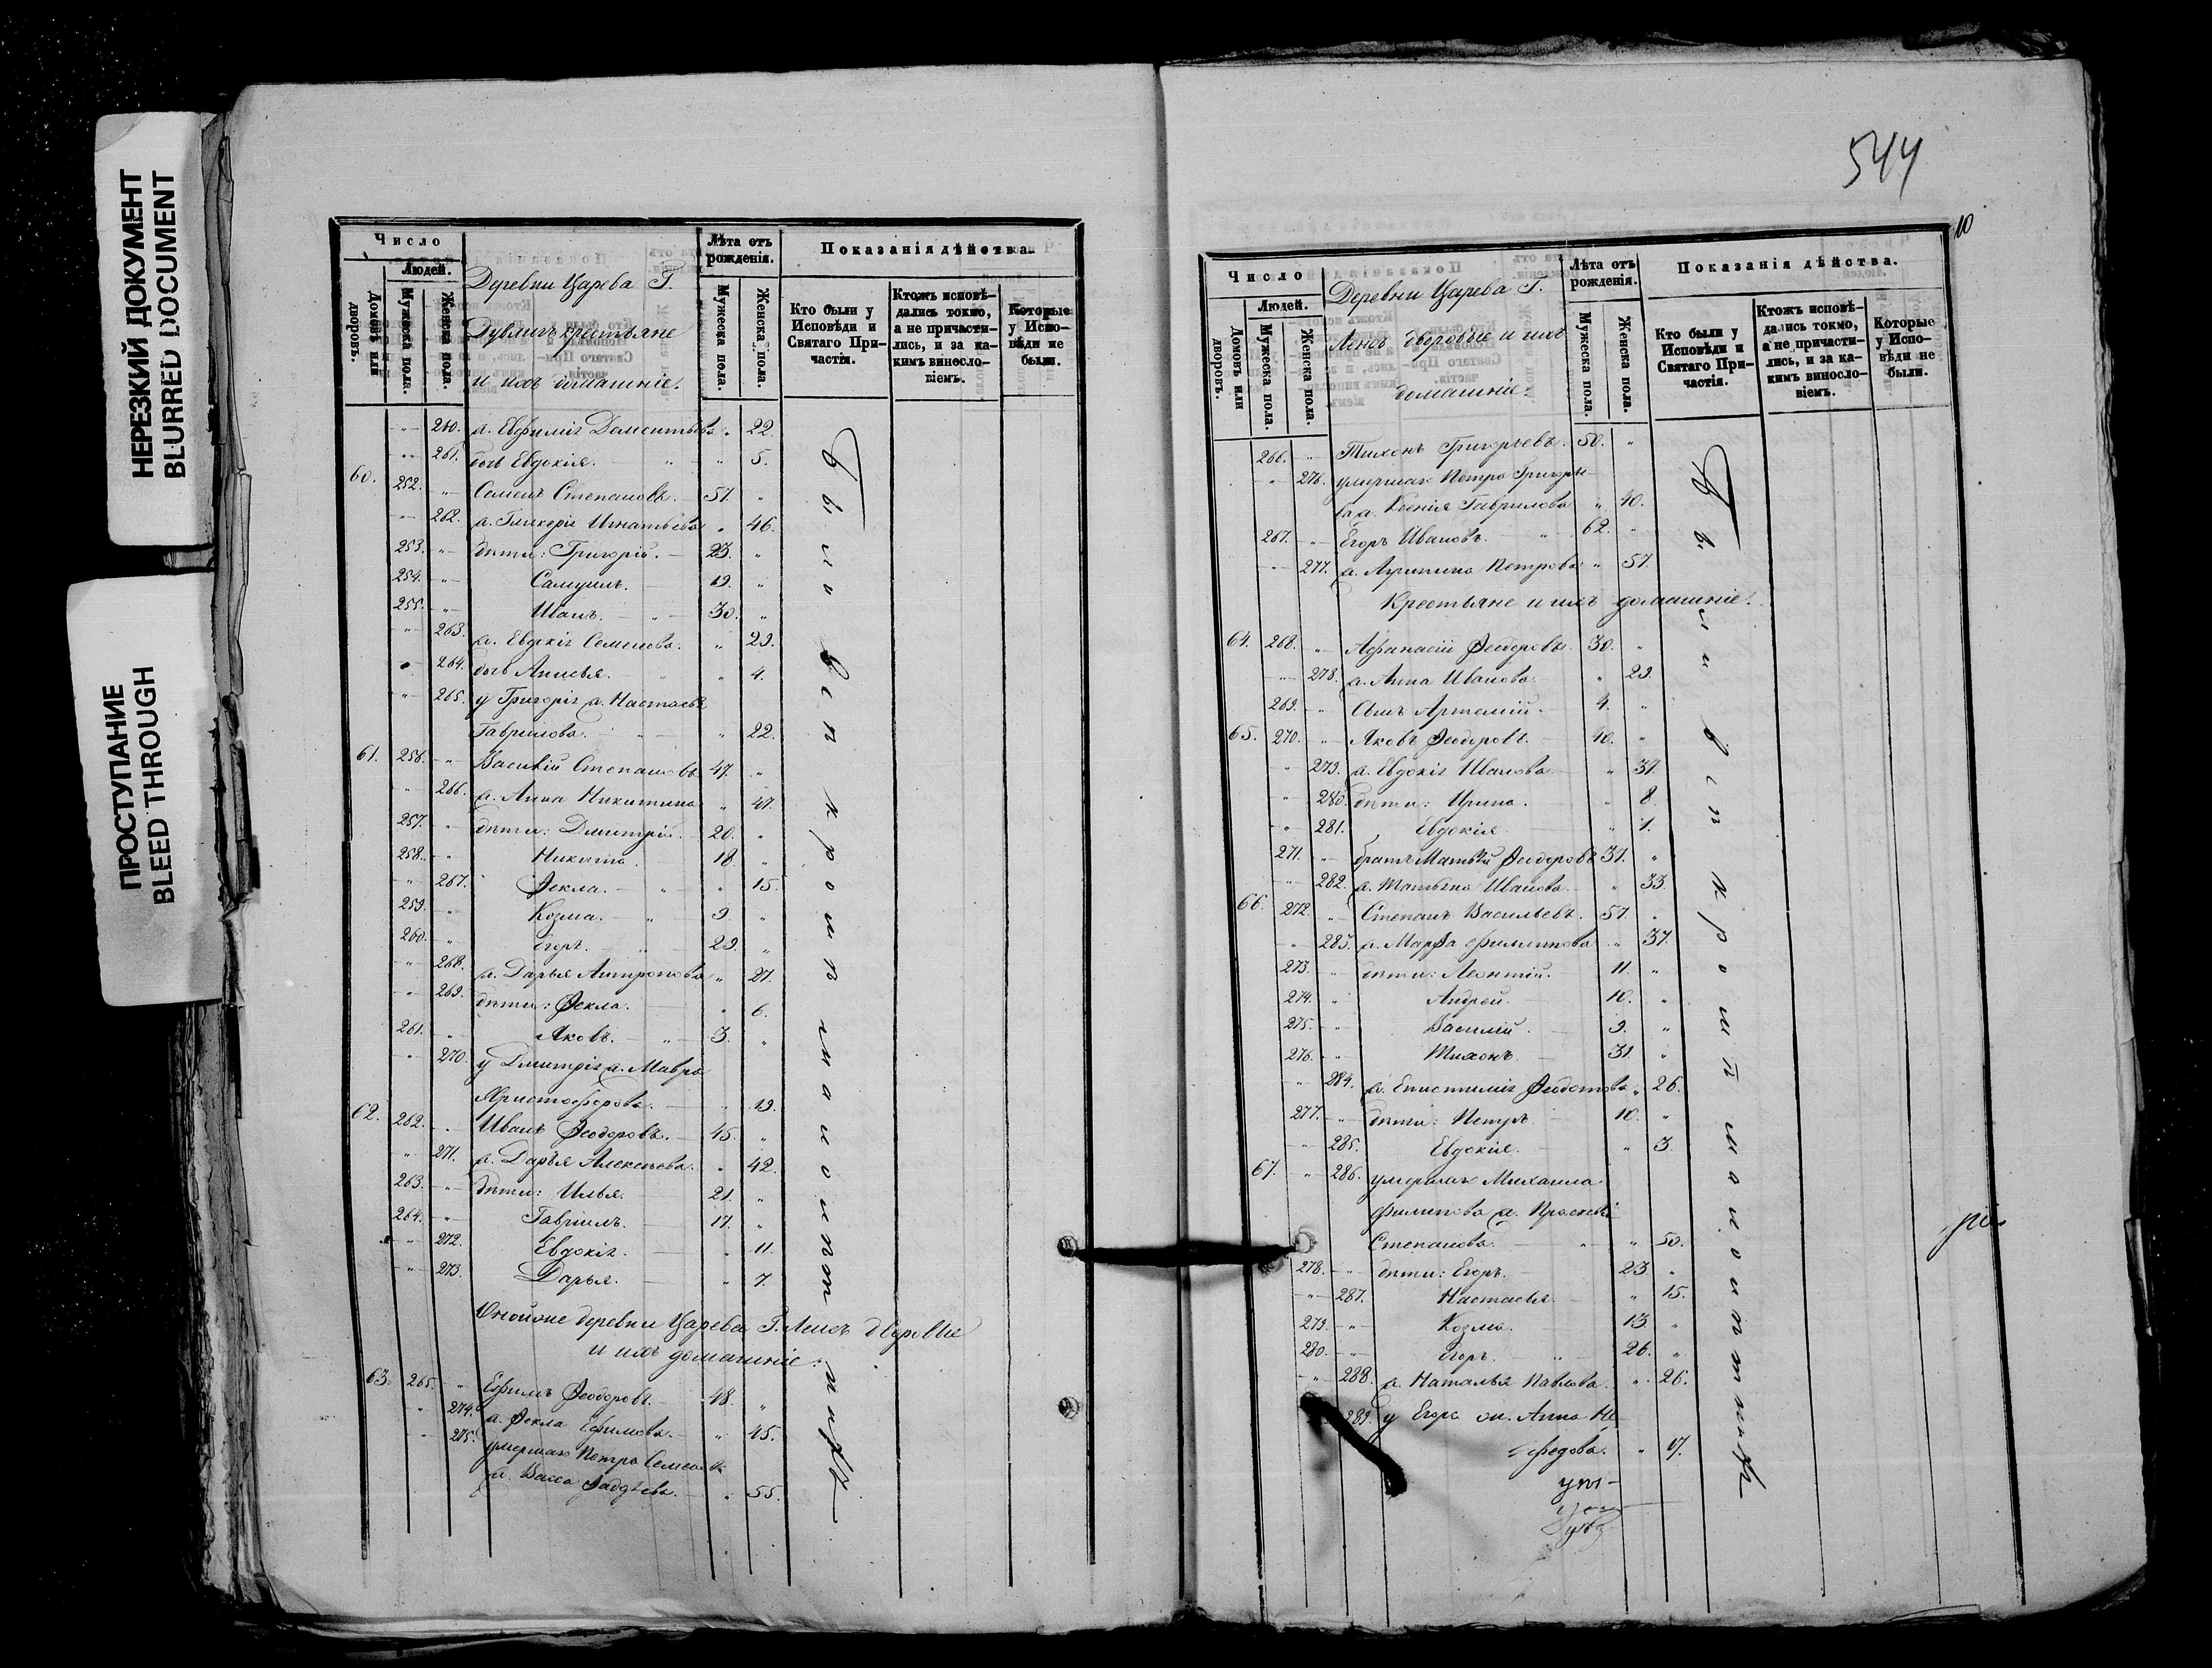 НЕРЕЗКИЙ ДОКУМЕНТ
BLURRED DOCUMENT
ПРОСТУПАНИЕ
BLEED THROUGH
Число
Людей.
Домовъ или дворовъ.
Мужеска пола.
Женска пола.
Деревни Царева Г.
крестьяне
и ихъ домашніе.
Лѣта отъ рожденія.
Мужеска пола.
Женска пола.
Показанія дѣйства.
Кто были у Исповѣди и Святаго Причастія.
Ктожъ исповѣдались токмо, а не причастились, и за какимъ винословіемъ.
Которые у Исповѣди не были.
" 260. ж. Евфимія Дементьева " 22.
" 261. дочь Евдокія. " 5.
60. 252. " Семенъ Степановъ. 51. "
" 262. ж. Гликерія Игнатьева " 46.
253. " дѣти: Григорій. 23. "
254. " Самуилъ. 19. "
255. " Иванъ. 30. "
" 263. ж. Евдокія Семенова. " 29.
" 264. дочь Анисья. " 4.
" 265. у Григорія ж. Настасья
Гаврилова. " 22.
61. 256. " Василій Степановъ 47. "
" 266. ж. Анна Никитина " 47.
257. " дѣти: Дмитрій. 20. "
258. " Никита. 18. "
" 267. Ѳекла. " 15.
259. " Козма. 9. "
260. " Егоръ. 29. "
" 268. ж. Дарья Антропова " 27.
" 269. дѣти: Ѳекла. " 6.
261. " Яковъ. 3. "
" 270. у Дмитрія ж. Мавра
Христофорова. " 19.
62. 262. " Иванъ Ѳеодоровъ. 45. "
" 271. ж. Дарья Алексѣева. " 42.
263. " дѣти: Илья. 21. "
264. " Гавріилъ. 17. "
" 272. Евдокія. " 11.
" 273. Дарья. " 7.
деревни Царева Г. Ленсъ дворовые
и ихъ домашніе.
63. 265. " Ефимъ Ѳеодоровъ. 48. "
" 274. ж. Ѳекла Ефимова. " 45.
" 275. умершаго Петра Семенова
ж. Васса Фадѣева. " 55.
Были
544
10
Число
Людей.
Домовъ или дворовъ.
Мужеска пола.
Женска пола.
Деревни Царева Г.
Ленсъ дворовые и ихъ
домашніе.
Лѣта отъ рожденія.
Мужеска пола.
Женска пола.
Показанія дѣйства.
Кто были у Исповѣди и Святаго Причастія.
Ктожъ исповѣдались токмо, а не причастились, и за какимъ винословіемъ.
Которые у Исповѣди не были.
266. " Тихонъ Григорьевъ. 50. "
" 276. умершаго Петра Григорье
ва ж. Ксенія Гаврилова " 40.
267. " Егоръ Ивановъ. 62. "
" 277. ж. Агрипина Петрова " 57.
Крестьяне и ихъ домашніе.
64. 268. " Афанасій Ѳеодоровъ. 30. "
" 278. ж. Анна Иванова. " 29.
269. " сынъ Артемій. 4. "
65. 270. " Яковъ Ѳеодоровъ. 40. "
" 279. ж. Евдокія Иванова. " 37.
" 280. дѣти: Ирина. " 8.
" 281. Евдокія. " 1.
271. " братъ Матвѣй Ѳеодоровъ 31. "
" 282. ж. Татьяна Иванова. " 33.
66. 272. " Степанъ Васильевъ. 57. "
" 283. ж. Марѳа Филиппова. " 37.
273. " дѣти: Леонтій. 11. "
274. " Андрей. 10. "
275. " Василій. 9. "
276. " Тихонъ. 31. "
" 284. ж. Епистимія Ѳеодотова " 26.
277. " дѣти: Петръ. 10. "
" 285. Евдокія. " 3.
67. " 286. умершаго Михаила
Филипова ж. Прасковья
Степанова. " 50.
278. " дѣти: Егоръ. 23. "
" 287. Настасья. " 15.
279. " Козма. 13. "
280. " Егоръ. 26. "
" 288. ж. Наталья Павлова. " 26.
289. у Егора ж. Анна Не-
федова. " 17.
Были